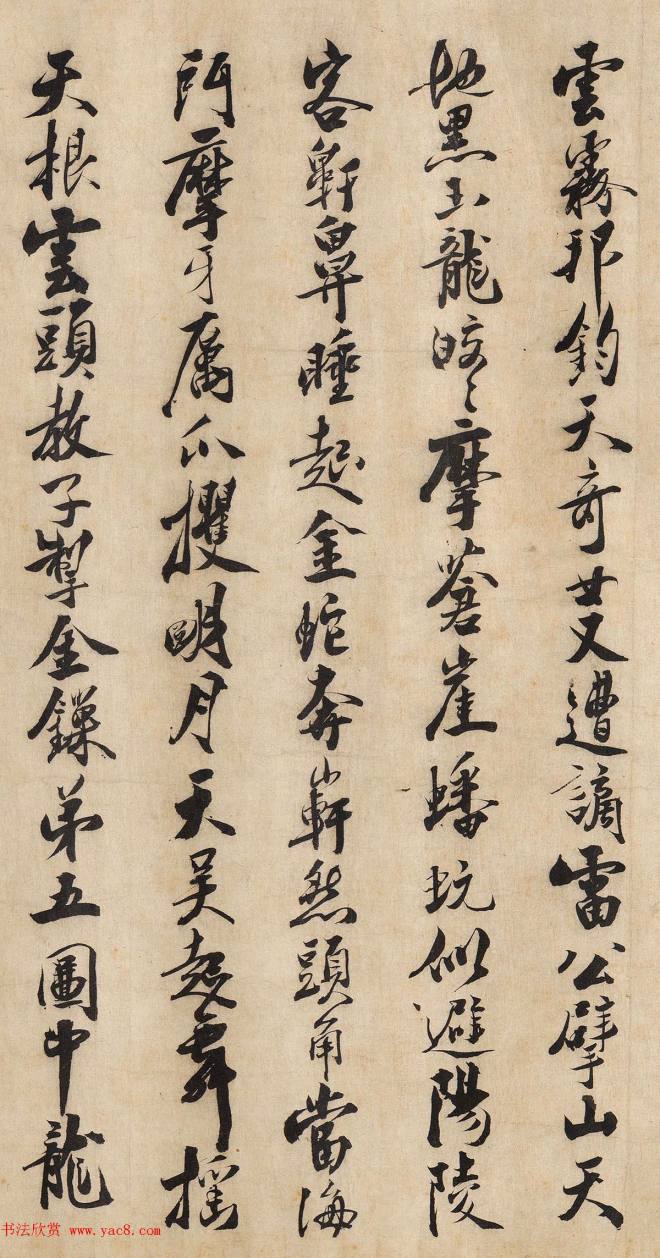 雲霧邪鈞天奇女又遭謫雷公擘山天
地黑玉龍皎〻摩蒼崖蟠蚖似避陽陵
客鼾鼻睡起金蛇奔嶄然頭角當海
門摩牙厲爪攫明月天吴起舞摇
天根雲頭教子掣金鏁弟五圖中龍
书法欣赏 www.yac8.com